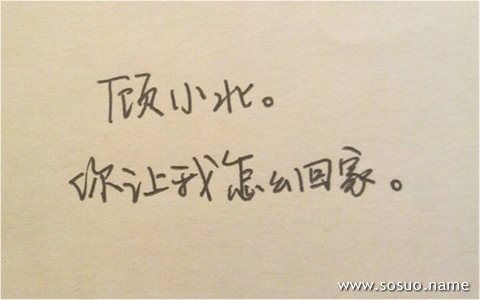 顾小北。
你让我怎么回家。
www.sosuo.name